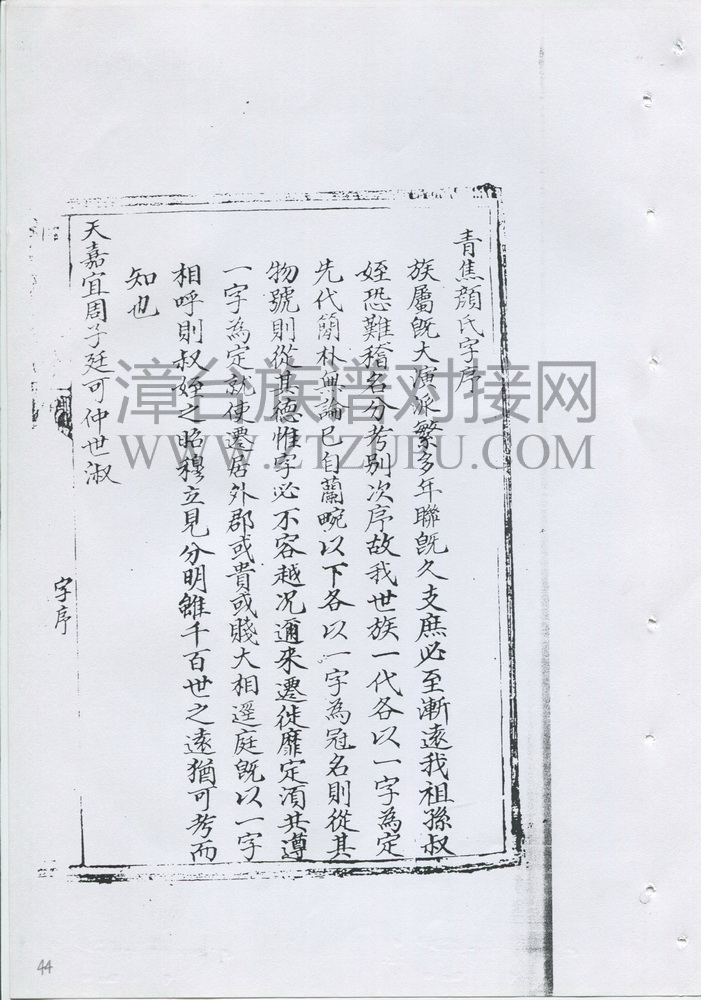 青焦顏氏字序
族屬旣大演派繁多年聯旣久支庶必至漸遠我祖孫叔
姪恐難稽名分考別次序故我世族一代各以一字為定
先代簡朴無論已自蘭畹以下各以一字為冠名則從其
物號則從其德惟字必不容越况邇來遷徙靡定湏共遵
一字為定就使遷居外郡或貴或賤大相逕庭旣以一字
相呼則叔姪之昭穆立見分明雖千百世之遠猶可考而
知也
天嘉宜周子廷可仲世淑
字序
漳台族谱对接网
WWW.ZTZUPU.COM
44